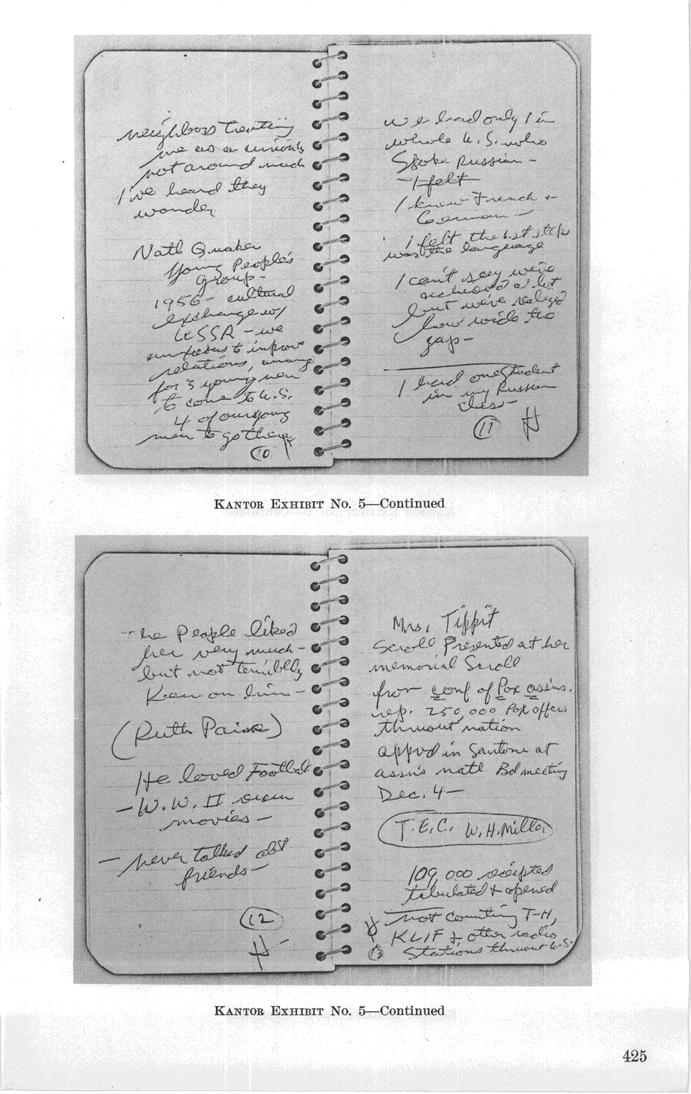 neighbors treating
me as a curiosity
not around much
I've heard they
wonder
Natl Quaker
Young People's
Group -
1956 - cultural
exchange w/
USSR - we
to improve
relations,
for 3 young men
to come to U.S.
4 of our young
men to go there
10
we had only 1 in
whole U.S. who
spoke Russian -
I felt
I knew French +
German -
I felt the 1st step
was the language
I can't say we've
achieved a lot
but we've
how wide the
gap -
I had one student
in my Russian
class -
11
KANTOR EXHIBIT No. 5—Continued
- he People liked
her very much -
but not terribly
Keen on him -
(Ruth Paine)
He loved Football
- W.W. II
movies -
- never talked abt
friends -
12
Mrs. Tippit
Scroll Presented at her
memorial Scroll
from conf of Pox assins.
rep. 250,000 Pox offers
thruout nation
appvd in Santone at
assn's natl Bd meeting
Dec. 4 -
T.E.C. W.H. Miller
109,000 receipted
tabulated + opened
not counting T-H,
KLIF + other radio
Stations thruout U.S.
13
KANTOR EXHIBIT No. 5—Continued
425